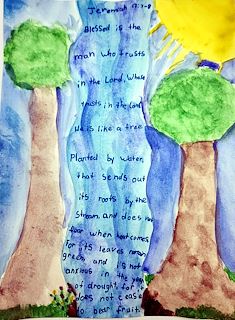 Jeremiah 17:7-8
Blessed is the
man who trusts
in the Lord, Whose
trusts in the Lord
He is like a tree
Planted by water,
that sends out
its roots by the
stream, and does not
fear when heat comes,
for its leaves remain
green, and is not
anxious in the year
of drought, for it
does not cease
to bear fruit.